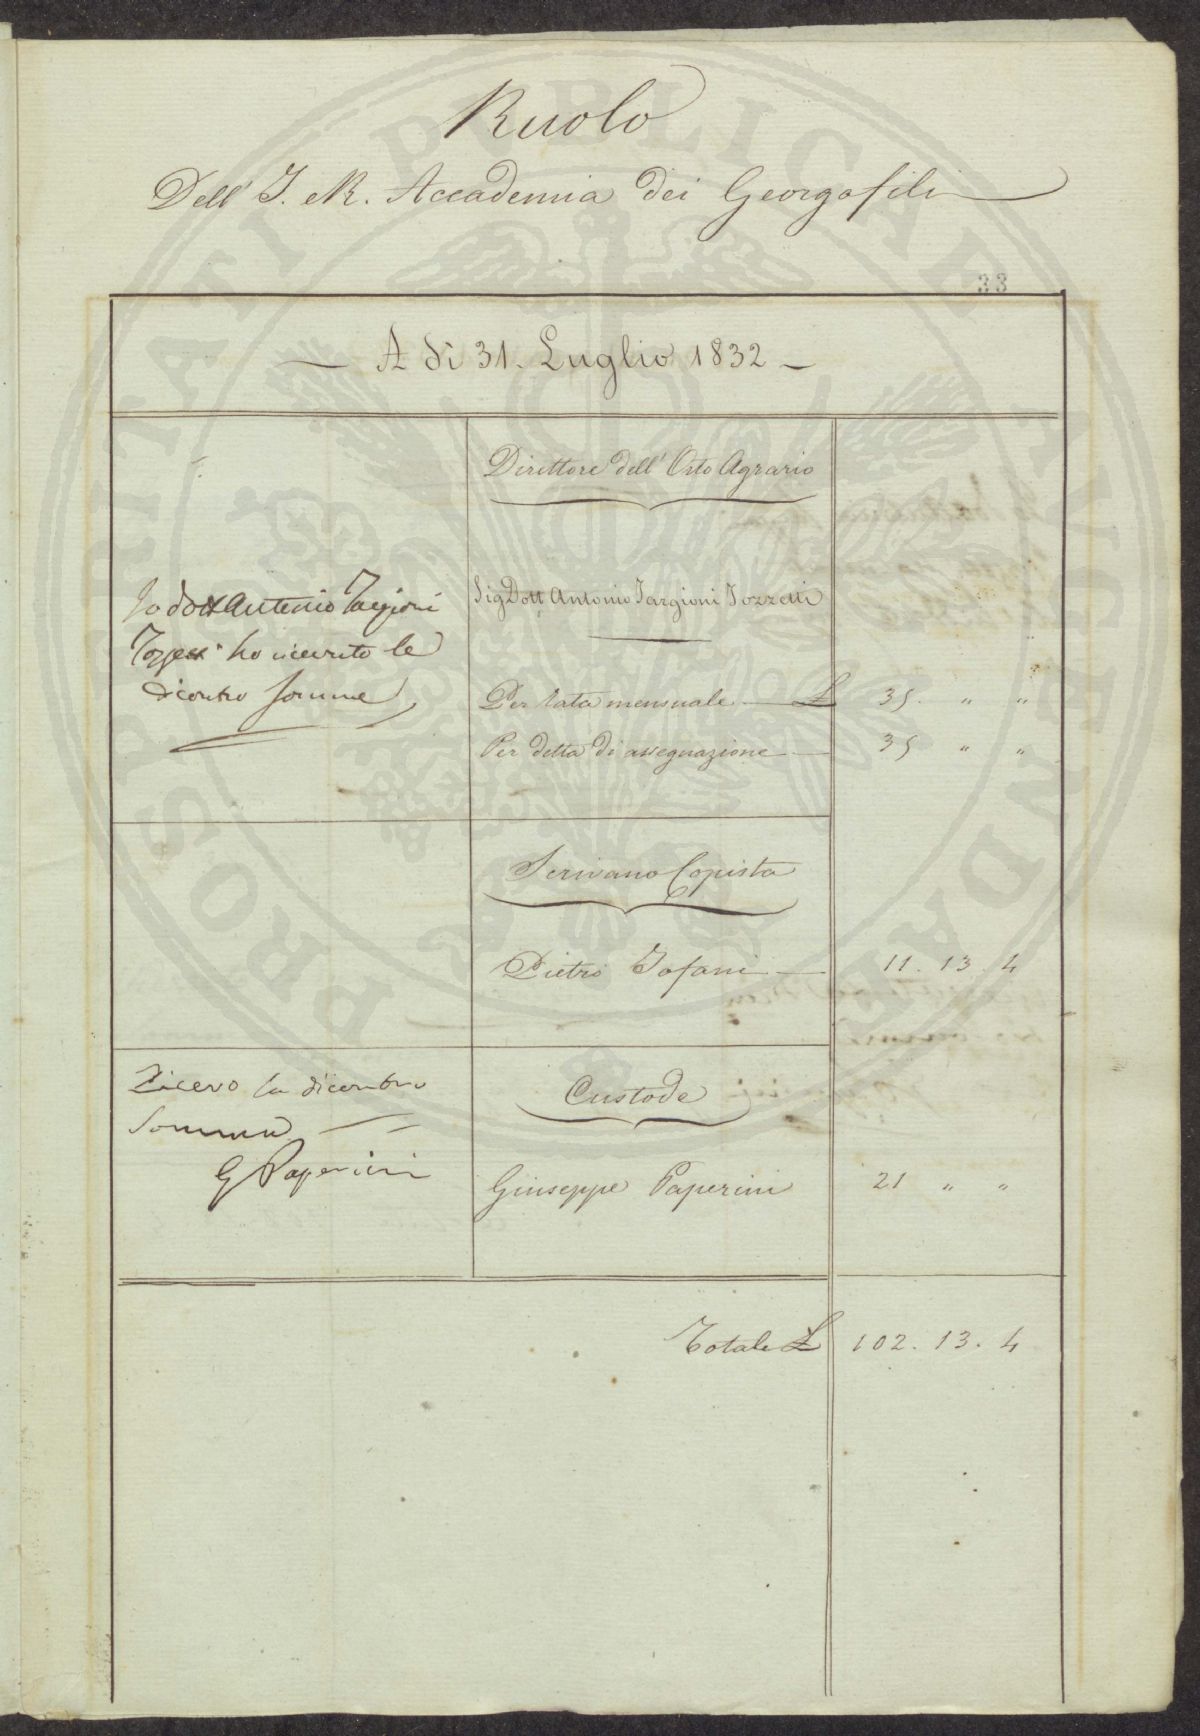 Ruolo
Dell' I. R. Accademia dei Georgofili
33
A dì 31. Luglio 1832
Direttore dell' Orto Agrario
Io dott Antonio Targioni
Tozzetti ho ricevuto le
dicontro somme
Sig Dott Antonio Targioni Tozzetti
Per rata mensuale £ 35. " "
Per detta di assegnazione 35 " "
Scrivano Copista
Pietro Tofani 11. 13. 4
Ricevo la dicontro
somma
G Paperini
Custode
Giuseppe Paperini 21 " "
Totale £ 102. 13. 4
PROSPERITATI PUBLICAE AUGENDAE